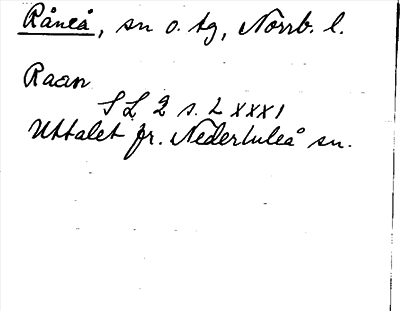 Råneå, sn o. tg, Norrb. l.
Raan
SL 2 s. LXXXI
Uttalet fr. Nederluleå sn.